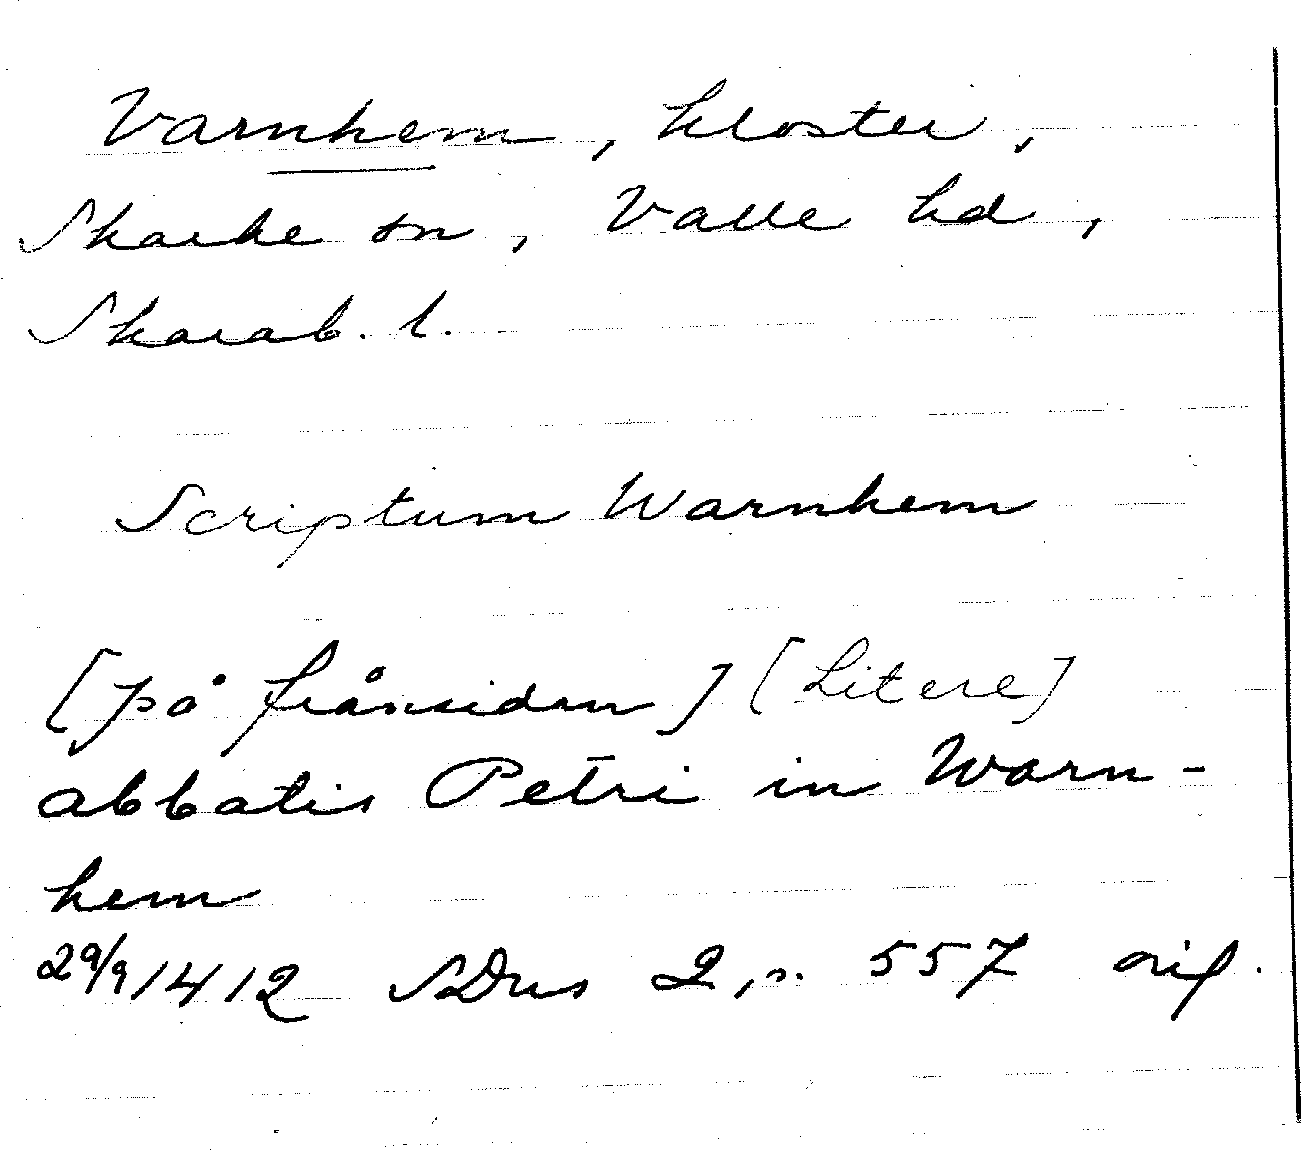 Varnhem, kloster,
Skarke sn, Valle hd,
Skarab. l.
Scriptum Warnhem
[på frånsidan] [Litere]
abbatis Petri in Warn-
hem
29/9 1412 SDns 2, s. 557 orig.